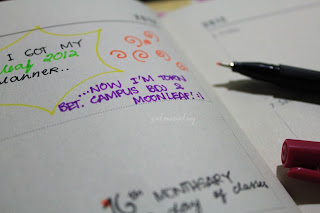 I GOT MY
leaf 2012
lanner..
...NOW I'M TORN
BET. CAMPUS BOJ &
MOONLEAF! :)
16TH MONTHSARY
day of classes